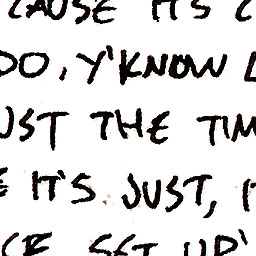 CAUSE IT'S C
DO, Y'KNOW
UST THE TIM
E IT'S JUST, I
CE SET UP'